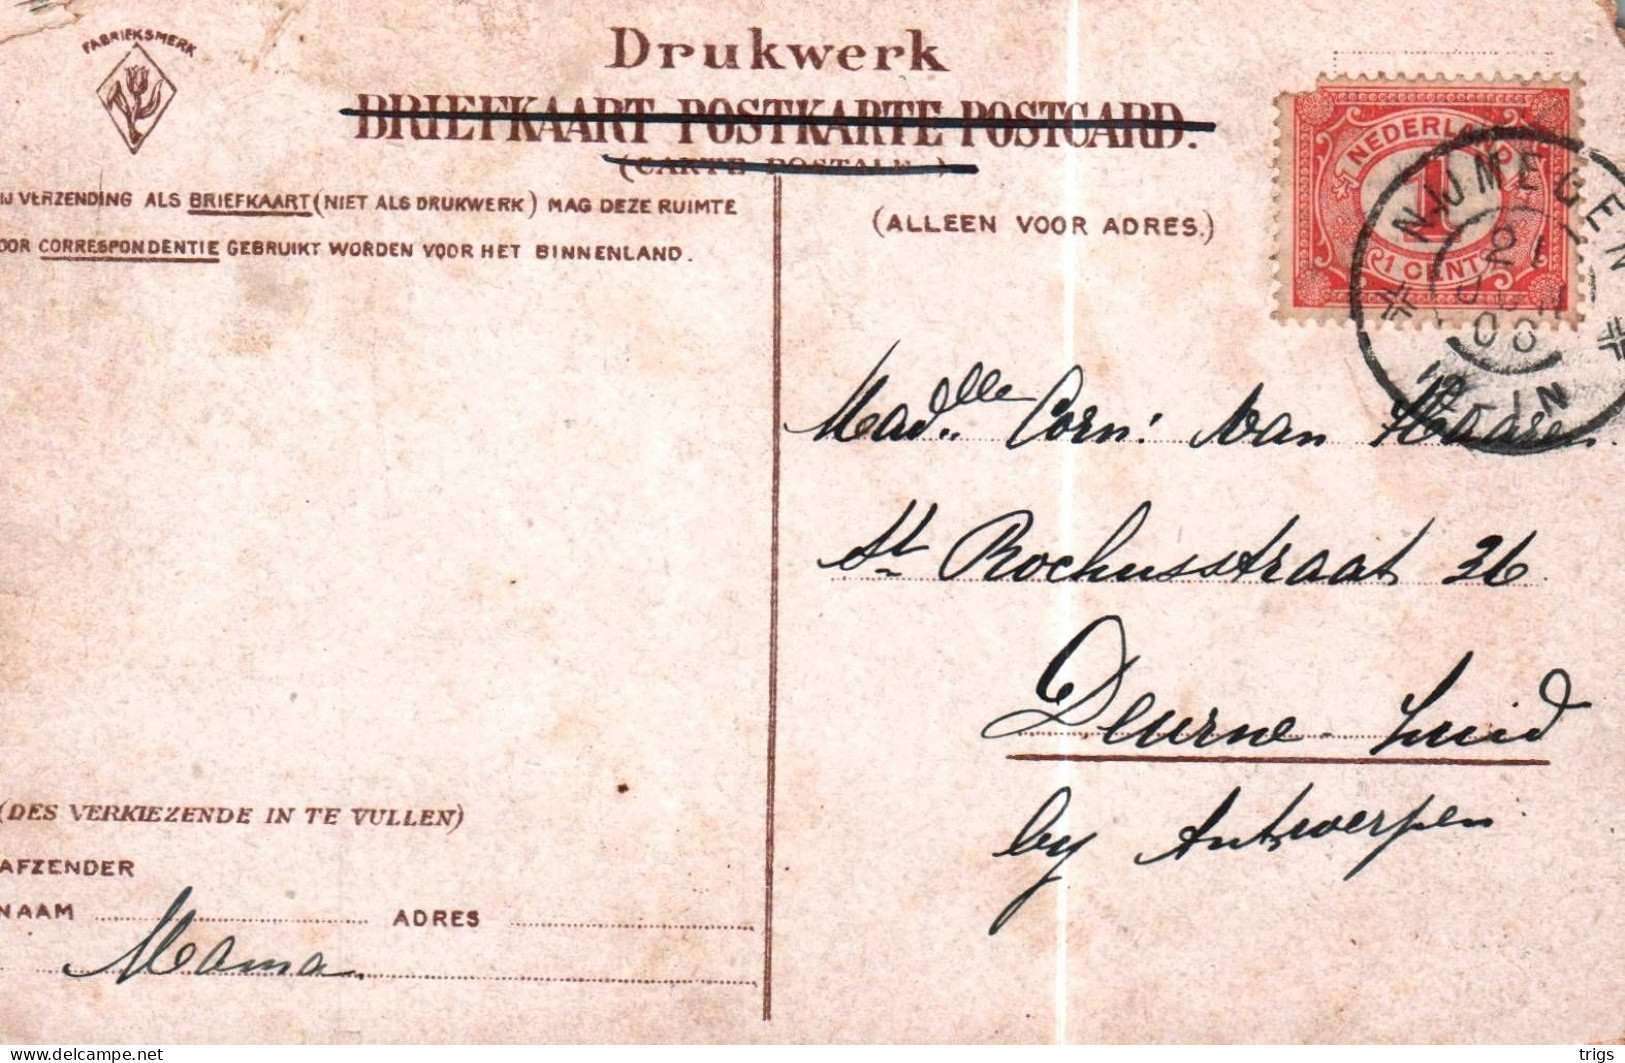 FABRIEKSMERK
Drukwerk
BRIEFKAART POSTKARTE POSTCARD.
(CARTE POSTALE.)
IJ VERZENDING ALS BRIEFKAART (NIET ALS DRUKWERK) MAG DEZE RUIMTE
OOR CORRESPONDENTIE GEBRUIKT WORDEN VOOR HET BINNENLAND.
(ALLEEN VOOR ADRES.)
NEDERLAND
1
1 CENT
NIJMEGEN
21
Madlle Corn: van Haaren
St Rochusstraat 36
Deurne Zuid
by Antwerpen
(DES VERKIEZENDE IN TE VULLEN)
AFZENDER
NAAM ADRES
Mama
delcampe.net
trigs